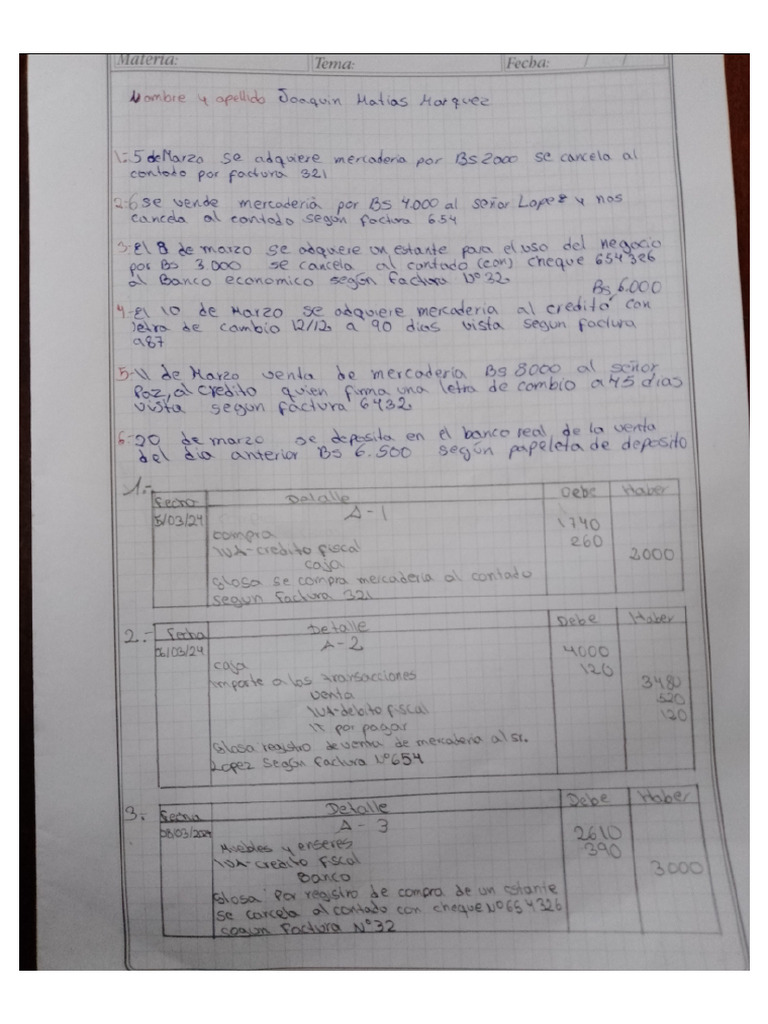 Materia: Tema: Fecha: / /
Nombre y apellido Joaquin Matias Marquez
1-5 de Marzo se adquiere mercaderia por Bs 2000 se cancela al
contado por factura 321
2-6 se vende mercaderia por Bs 4.000 al señor Lopez y nos
cancela al contado según factura 654
3-El 8 de marzo se adquiere un estante para el uso del negocio
por Bs 3.000 se cancela al contado (con) cheque 654326
al Banco economico según factura Nº32
Bs 6.000
4-El 10 de Marzo se adquiere mercaderia al credito con
letra de cambio 12/12 a 90 dias vista segun factura
987
5-11 de Marzo venta de mercaderia Bs 8000 al señor
Paz, al credito quien firma una letra de cambio a 45 dias
vista segun factura 6432
6-20 de marzo se deposita en el banco real, de la venta
del dia anterior Bs 6.500 según papeleta de deposito
1.-
Fecha Datalle Debe Haber
5/03/24 A-1
compra 1740
IVA-credito fiscal 260
caja 2000
Glosa se compra mercaderia al contado
segun factura 321
2.-
Fecha Detalle Debe Haber
06/03/24 A-2
caja 4000
Imposte a los transacciones 120
venta 3480
IVA-debito fiscal 520
IT por pagar 120
Glosa registro de venta de mercaderia al sr.
Lopez Según factura Nº654
3.
Fecha Detalle Debe Haber
08/03/2024 A-3
Muebles y enseres 2610
IVA-credito fiscal 390
Banco 3000
Glosa Por registro de compra de un estante
se carcela al contado con cheque Nº654326
según factura Nº32